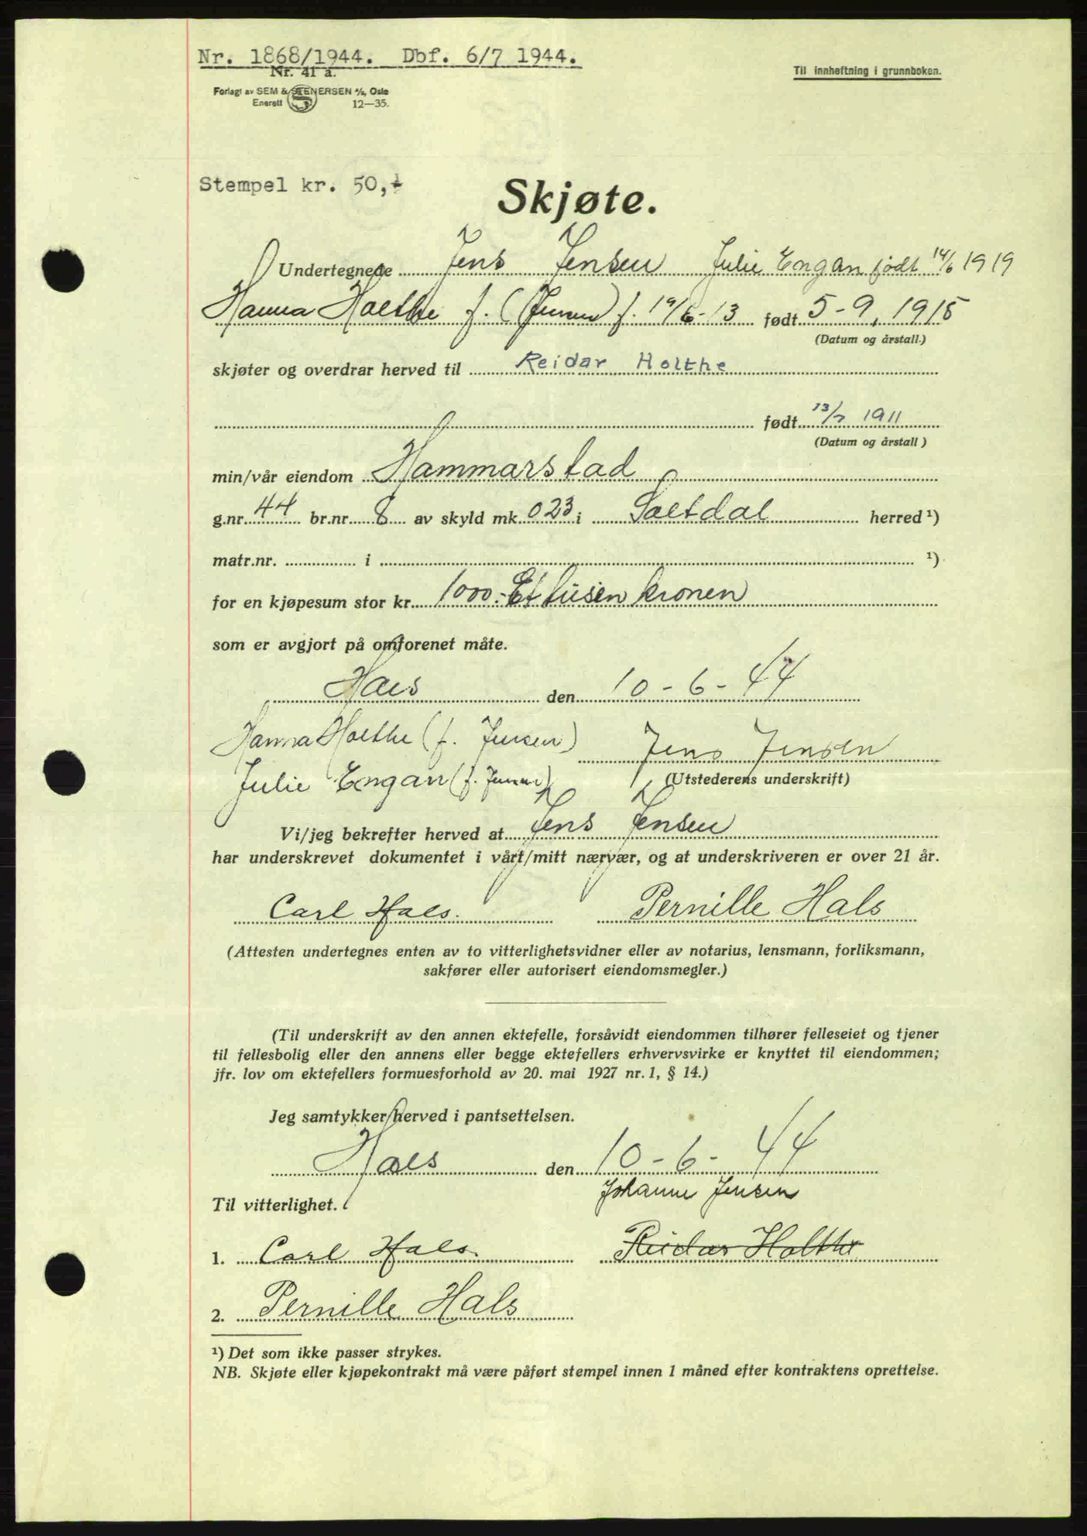 Nr. 1868/1944. Dbf. 6/7 1944.
Nr. 41 a.
Til innheftning i grunnboken.
Forlagt av SEM & STENERSEN A/S, Oslo
Enerett 12—35.
Stempel kr. 50,-
Skjøte.
Undertegnede Jens Jensen Julie Engan født 14/6 1919
Hanna Holthe f. (Jensen) f. 19/6-13 født 5-9, 1915
(Datum og årstall.)
skjøter og overdrar herved til Reidar Holthe
født 13/7 1911
(Datum og årstall)
min/vår eiendom Hammarstad
g.nr. 44 br.nr. 8 av skyld mk. 023 i Saltdal herred ¹)
matr.nr. i ¹)
for en kjøpesum stor kr. 1000.- Et tusen kronen
som er avgjort på omforenet måte.
Hals den 10-6-44
Hanna Holthe (f. Jensen) Jens Jensen
Julie Engan (f. Jensen) (Utstederens underskrift)
Vi/jeg bekrefter herved at Jens Jensen
har underskrevet dokumentet i vårt/mitt nærvær, og at underskriveren er over 21 år.
Carl Hals. Pernille Hals
(Attesten undertegnes enten av to vitterlighetsvidner eller av notarius, lensmann, forliksmann,
sakfører eller autorisert eiendomsmegler.)
(Til underskrift av den annen ektefelle, forsåvidt eiendommen tilhører felleseiet og tjener
til fellesbolig eller den annens eller begge ektefellers erhvervsvirke er knyttet til eiendommen;
jfr. lov om ektefellers formuesforhold av 20. mai 1927 nr. 1, § 14.)
Jeg samtykker herved i pantsettelsen.
Hals den 10-6-44
Johanne Jensen
Til vitterlighet.
1. Carl Hals. Reidar Holthe
2. Pernille Hals
¹) Det som ikke passer strykes.
NB. Skjøte eller kjøpekontrakt må være påført stempel innen 1 måned efter kontraktens oprettelse.